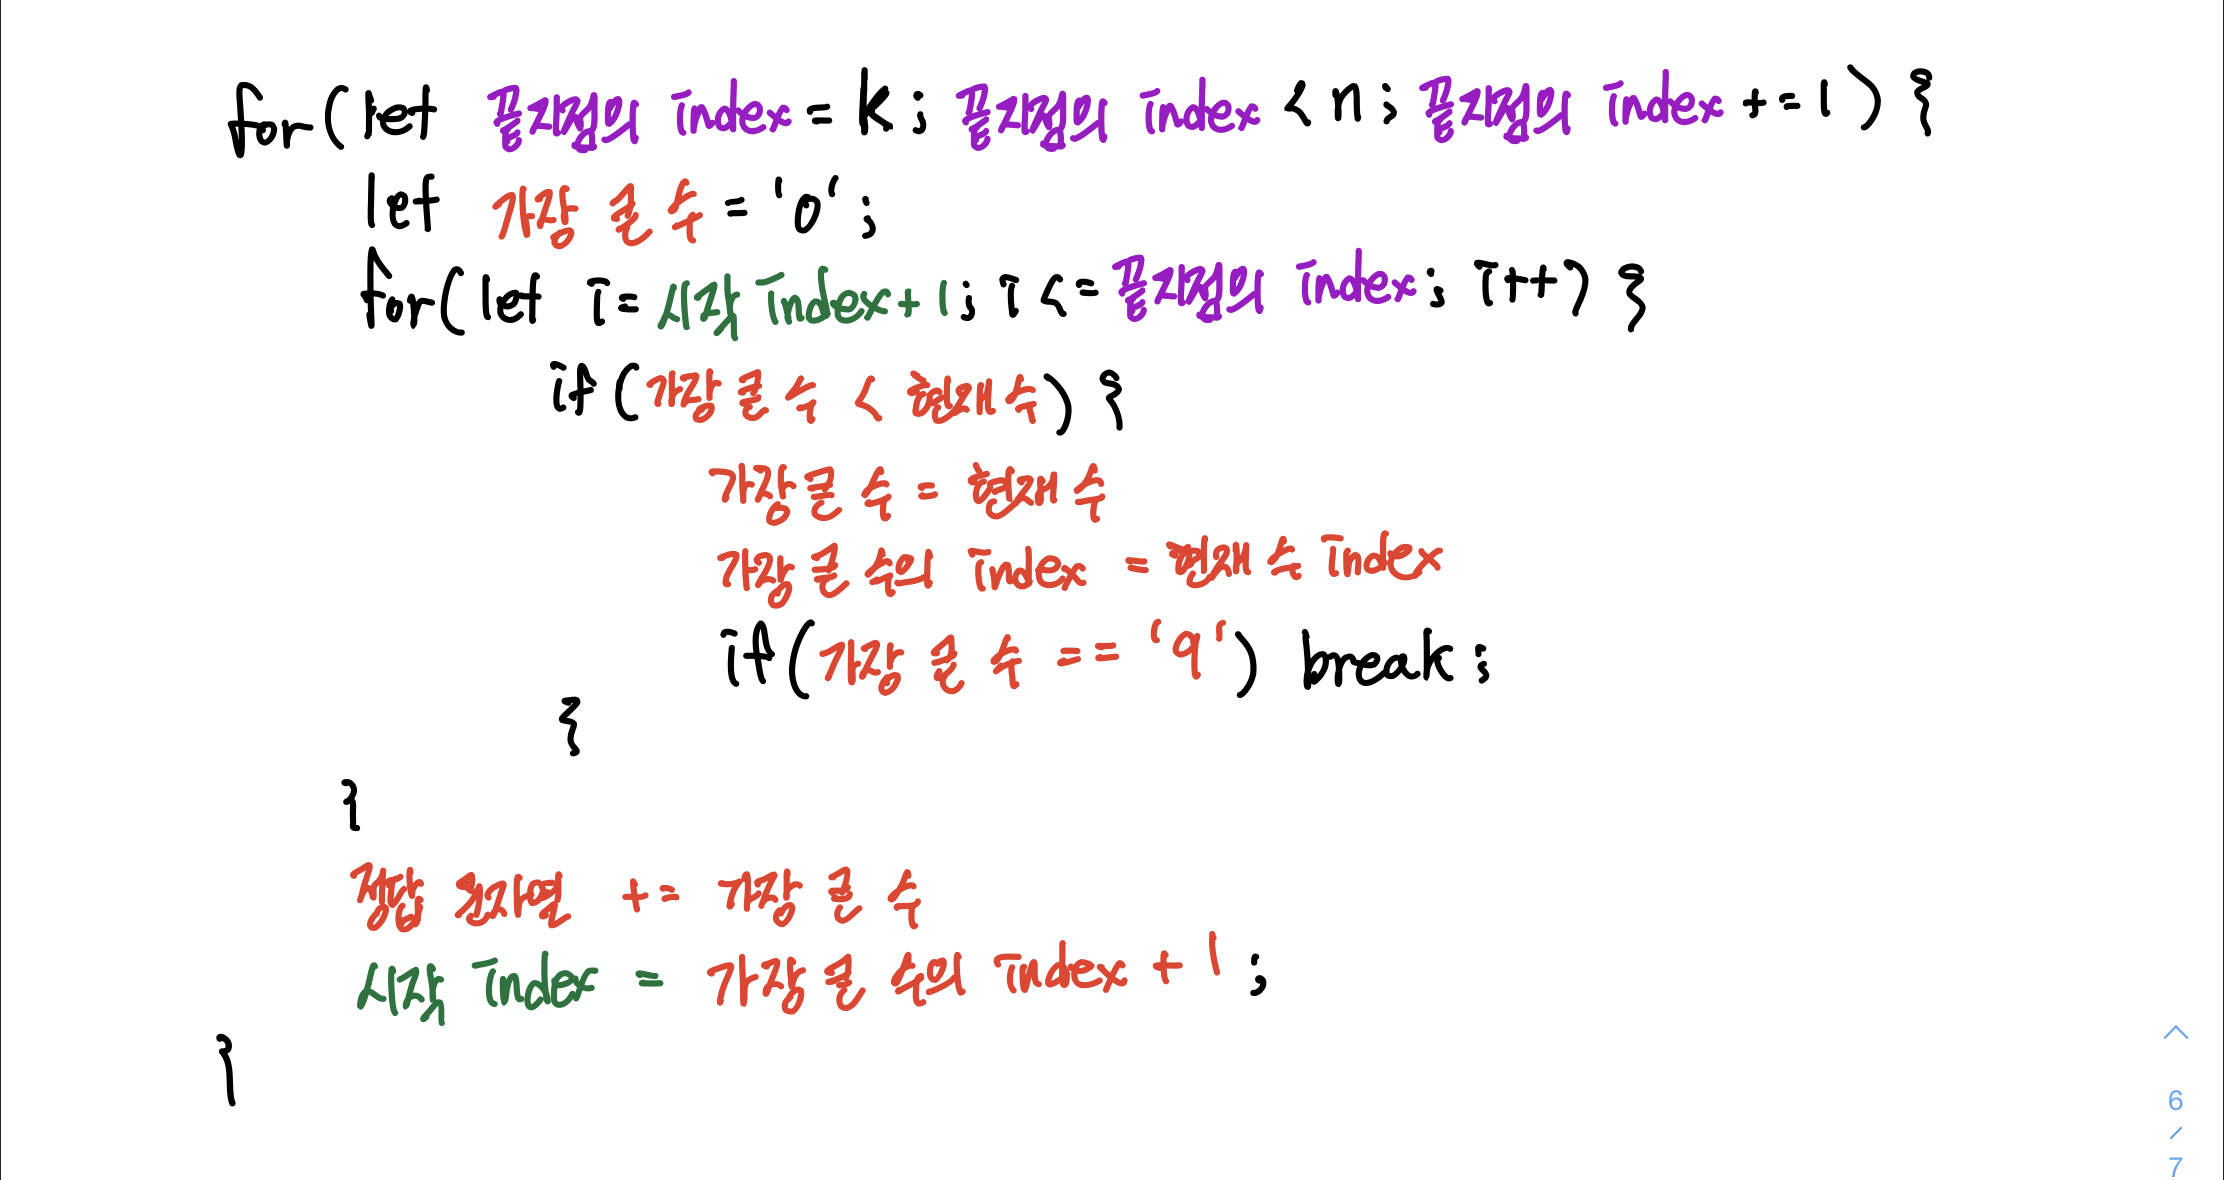 for(let 끝지점의 index = k; 끝지점의 index < n; 끝지점의 index += 1) {
let 가장 큰 수 = '0';
for(let i = 시작 index + 1; i <= 끝지점의 index; i++) {
if(가장 큰 수 < 현재 수) {
가장 큰 수 = 현재 수
가장 큰 수의 index = 현재 수 index
if(가장 큰 수 == '9') break;
{
}
정답 문자열 += 가장 큰 수
시작 index = 가장 큰 수의 index + 1;
}
6
/
7